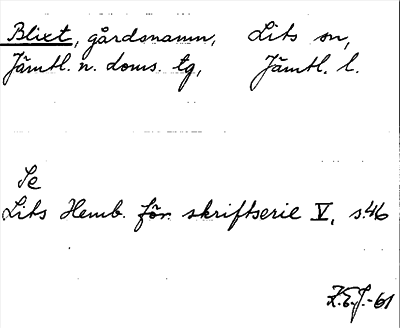 Blixt, gårdsnamn, Lits sn,
Jämtl. n. doms. tg, Jämtl. l.
Se
Lits Hemb. för. skriftserie V, s.46
K.E.J.-61